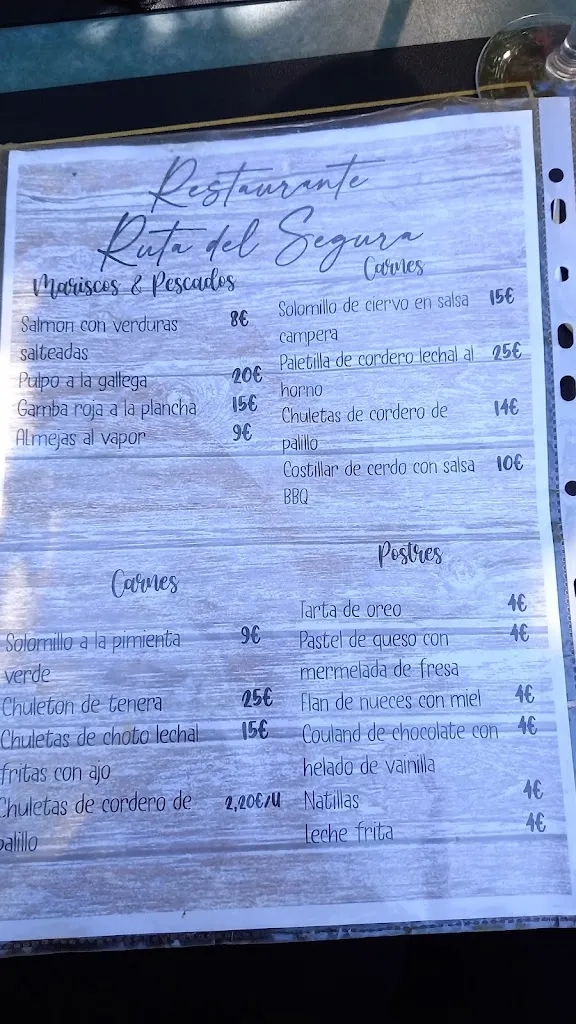 Restaurante
Ruta del Segura
Mariscos & Pescados
Salmon con verduras 8€
salteadas
Pulpo a la gallega 20€
Gamba roja a la plancha 15€
Almejas al vapor 9€
Carnes
Solomillo de ciervo en salsa 15€
campera
Paletilla de cordero lechal al 25€
horno
Chuletas de cordero de 14€
palillo
Costillar de cerdo con salsa 10€
BBQ
Carnes
Solomillo a la pimienta 9€
verde
Chuleton de tenera 25€
Chuletas de choto lechal 15€
fritas con ajo
Chuletas de cordero de 2,20€/U
palillo
Postres
Tarta de oreo 4€
Pastel de queso con 4€
mermelada de fresa
Flan de nueces con miel 4€
Couland de chocolate con 4€
helado de vainilla
Natillas 4€
Leche frita 4€